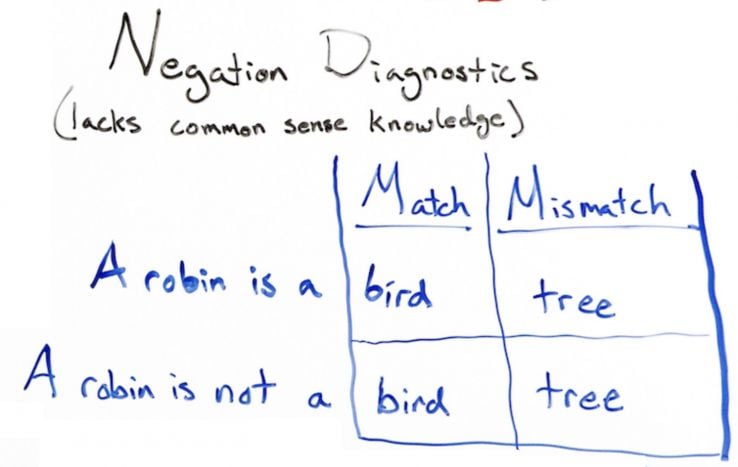 Negation Diagnostics
(lacks common sense knowledge)
Match Mismatch
A robin is a bird tree
A robin is not a bird tree